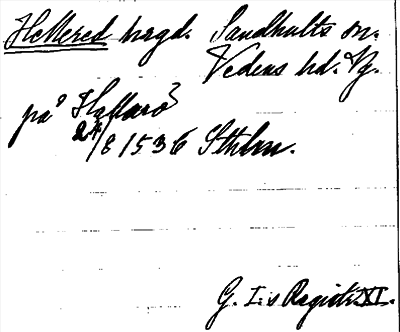 Hellered hrgd. Sandhults sn.
Vedens hd. Vg.
på Hallarö
24/8 1536 Sthlm.
G. I:s Registr. XI.